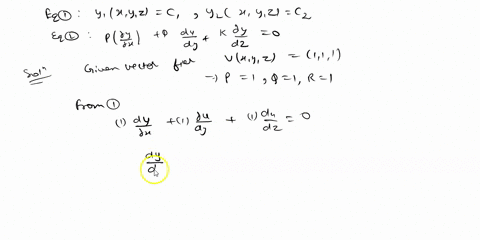 Eq①: y₁(x,y,z) = C₁ , y₂(x,y,z) = C₂
Eq②: P(∂y/∂x) + Q du/dy + R ∂y/dz = 0
Solⁿ Given vector V(x,y,z) = (1,1,1)
→ P = 1, Q = 1, R = 1
From ①
(1) dy/∂x + (1) ∂u/dy + (1) du/dz = 0
dy/d